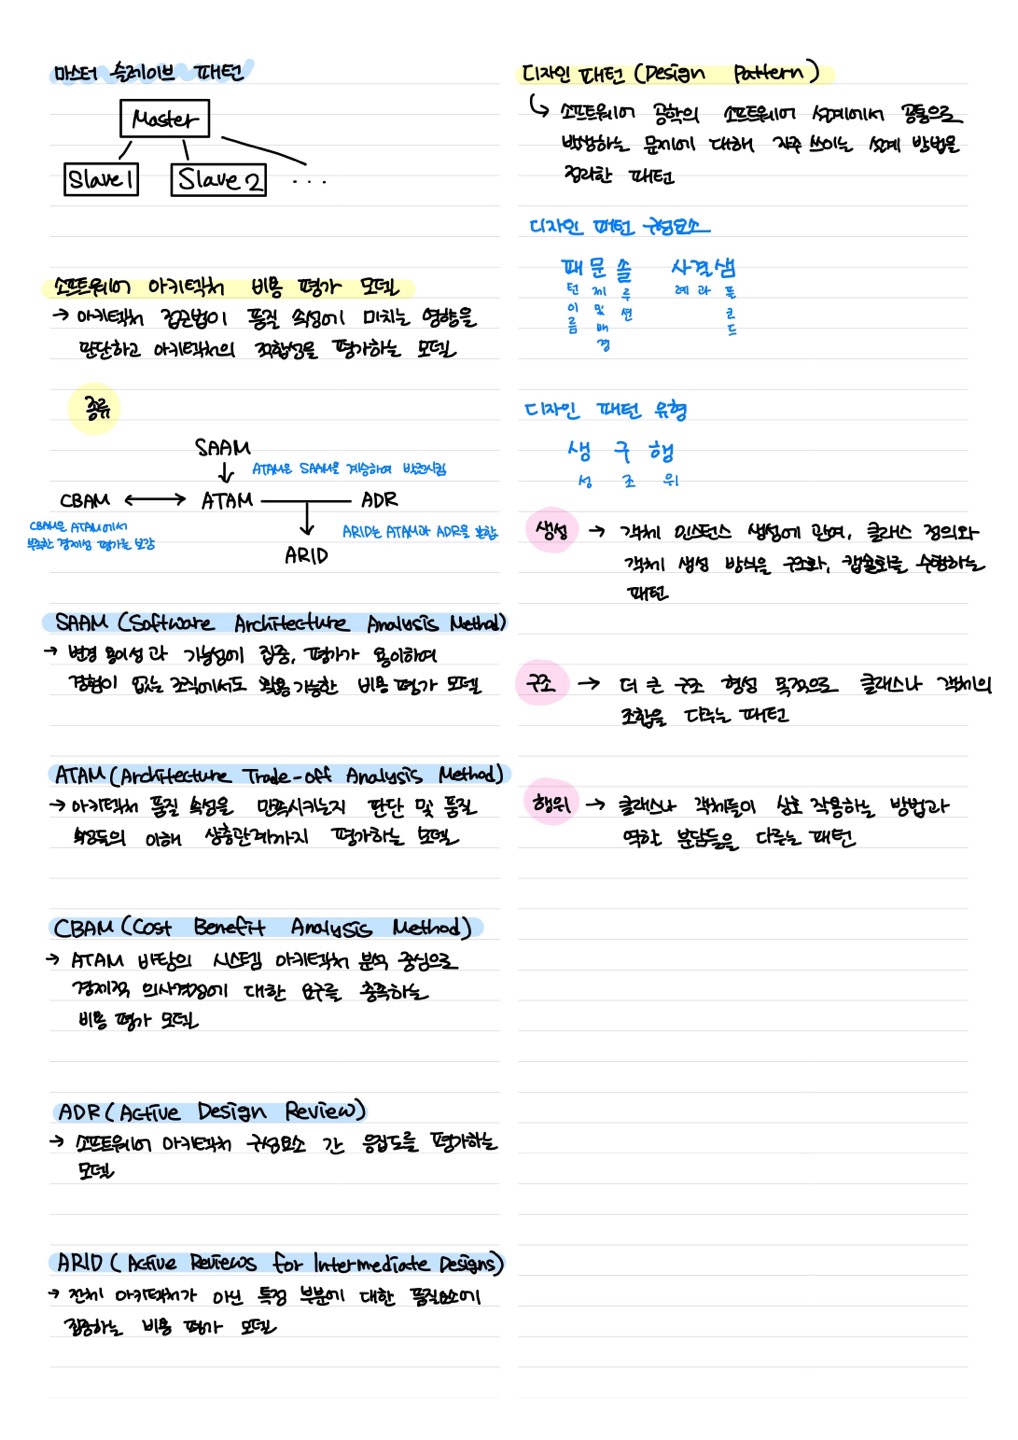 마스터 슬레이브 패턴
Master
Slave1
Slave2
...
소프트웨어 아키텍처 비용 평가 모델
→ 아키텍처 접근법이 품질 속성에 미치는 영향을
판단하고 아키텍처의 적합성을 평가하는 모델
종류
SAAM
ATAM은 SAAM을 계승하여 발전시킴
CBAM ↔ ATAM ADR
CBAM은 ATAM에서
부족한 경제성 평가를 보강
ARID는 ATAM과 ADR을 혼합
ARID
SAAM (Software Architecture Analysis Method)
→ 변경 용이성과 기능성에 집중, 평가가 용이하여
경험이 없는 조직에서도 활용 가능한 비용 평가 모델
ATAM (Architecture Trade-off Analysis Method)
→ 아키텍처 품질 속성을 만족시키는지 판단 및 품질
속성들의 이해 상충관계까지 평가하는 모델
CBAM (Cost Benefit Analysis Method)
→ ATAM 바탕의 시스템 아키텍처 분석 중심으로
경제적 의사결정에 대한 요구를 충족하는
비용 평가 모델
ADR (Active Design Review)
→ 소프트웨어 아키텍처 구성요소 간 응집도를 평가하는
모델
ARID (Active Reviews for Intermediate Designs)
→ 전체 아키텍처가 아닌 특정 부분에 대한 품질요소에
집중하는 비용 평가 모델
디자인 패턴 (Design Pattern)
소프트웨어 공학의 소프트웨어 설계에서 공통으로
발생하는 문제에 대해 자주 쓰이는 설계 방법을
정리한 패턴
디자인 패턴 구성요소
패문솔 사결샘
턴 제 루 례 과 플
이 및 션 코
름 배 드
경
디자인 패턴 유형
생 구 행
성 조 위
생성 → 객체 인스턴스 생성에 관여, 클래스 정의와
객체 생성 방식을 구조화, 캡슐화를 수행하는
패턴
구조 → 더 큰 구조 형성 목적으로 클래스나 객체의
조합을 다루는 패턴
행위 → 클래스나 객체들이 상호 작용하는 방법과
역할 분담들을 다루는 패턴